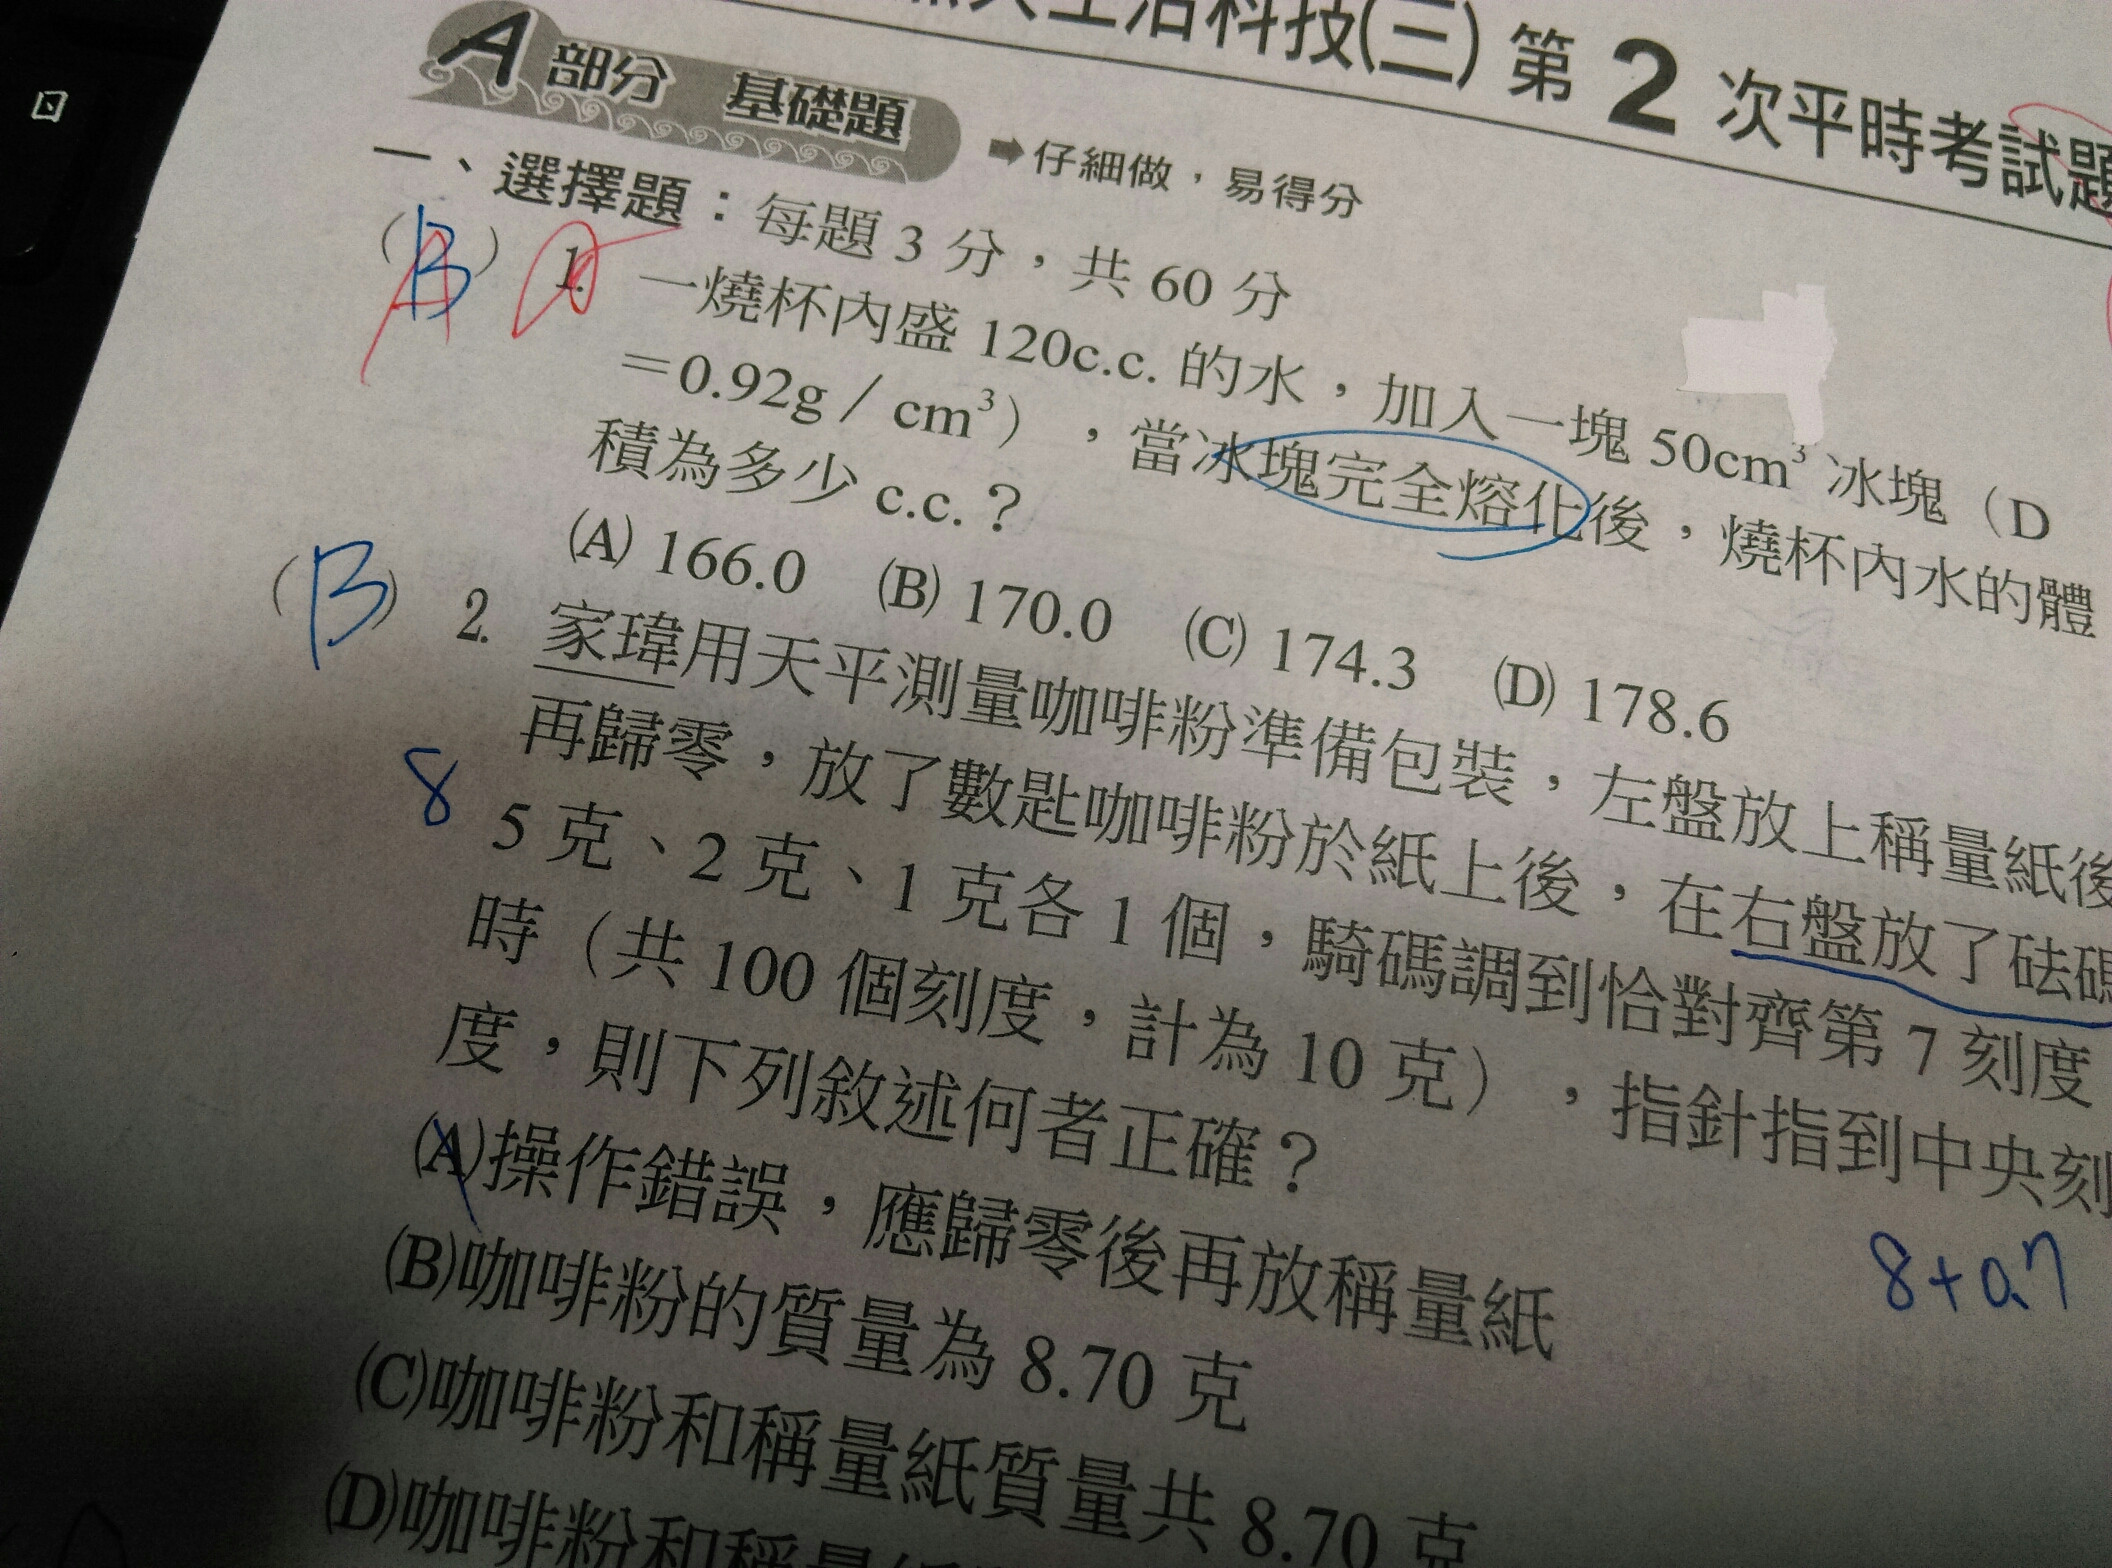 生活科技(三) 第 2 次平時考試題
A 部分 基礎題 ➡仔細做，易得分
一、選擇題：每題 3 分，共 60 分
(B) A 1. 一燒杯內盛 120c.c. 的水，加入一塊 50cm³ 冰塊（D
＝0.92g／cm³），當冰塊完全熔化後，燒杯內水的體
積為多少 c.c.？
(A) 166.0 (B) 170.0 (C) 174.3 (D) 178.6
(B) 2. 家瑋用天平測量咖啡粉準備包裝，左盤放上稱量紙後
再歸零，放了數匙咖啡粉於紙上後，在右盤放了砝碼
8 5 克、2 克、1 克各 1 個，騎碼調到恰對齊第 7 刻度
時（共 100 個刻度，計為 10 克），指針指到中央刻
度，則下列敘述何者正確？
(A)操作錯誤，應歸零後再放稱量紙
8+0.7
(B)咖啡粉的質量為 8.70 克
(C)咖啡粉和稱量紙質量共 8.70 克
(D)咖啡粉和稱量紙